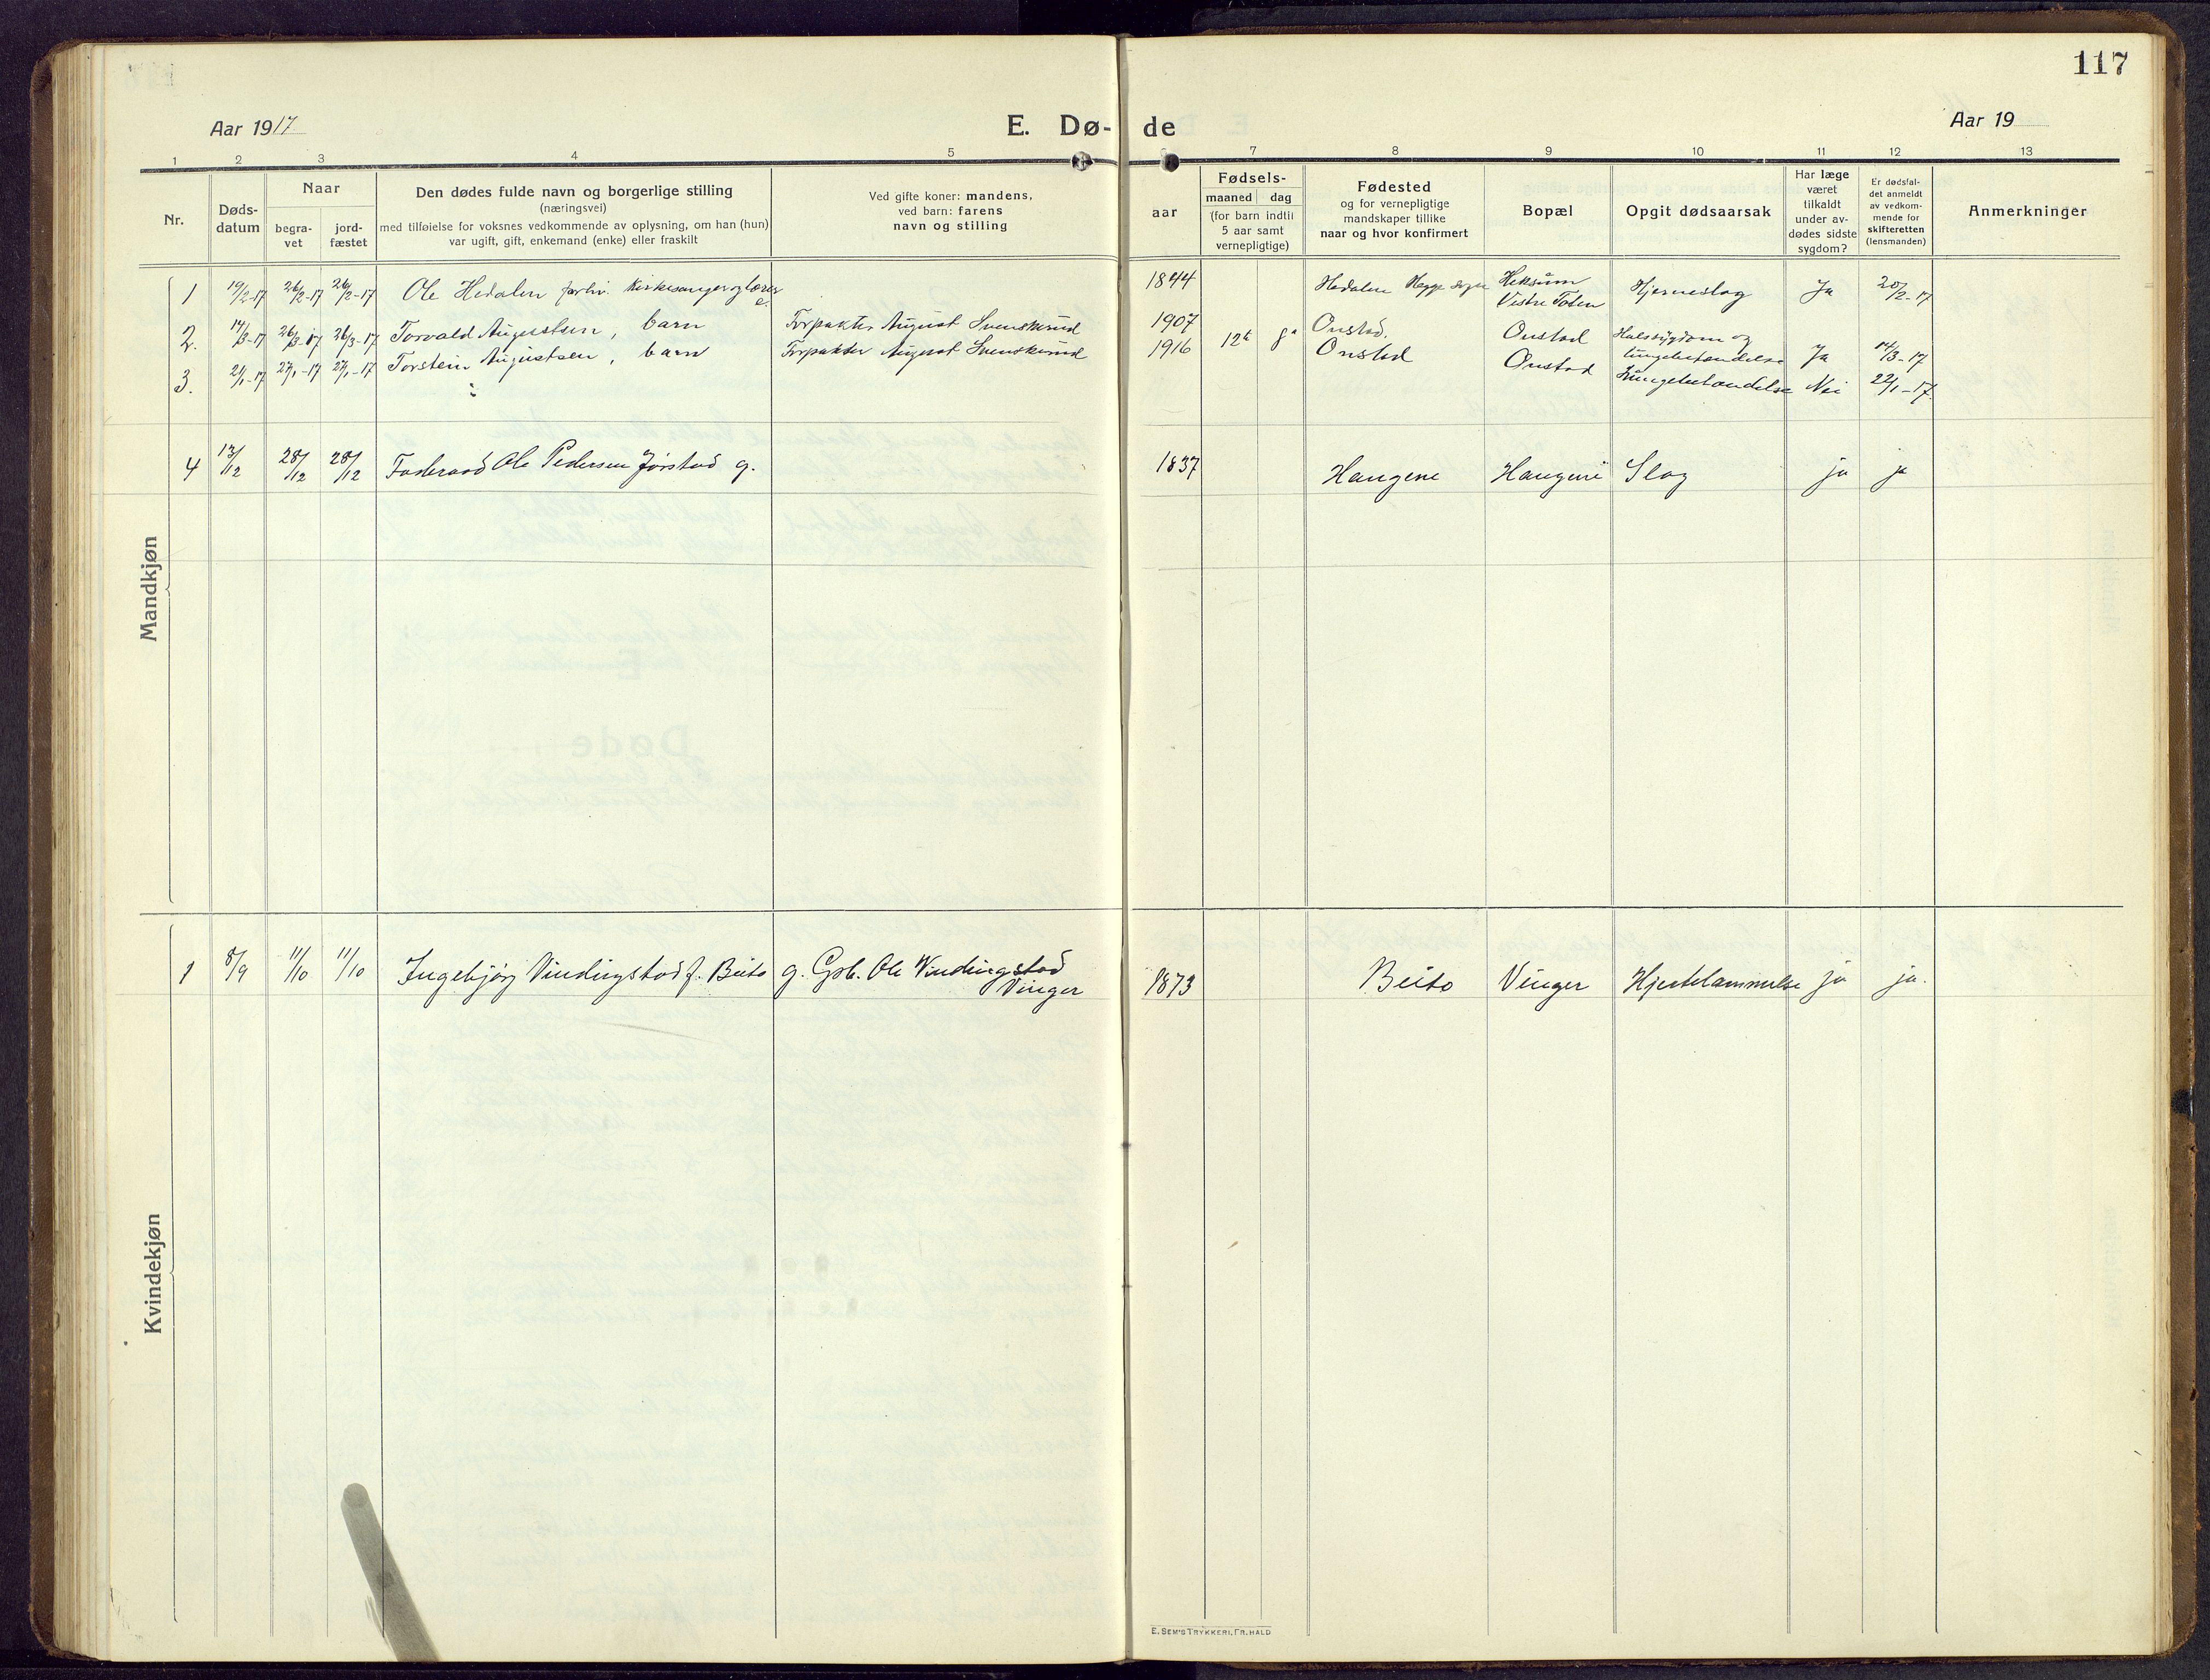 117
Aar 1917
E. Dø-
de
Aar 19
1 2 3 4 5 7 8 9 10 11 12 13
Nr.
Døds-
datum
Naar
begra-
vet
jord-
fæstet
Den dødes fulde navn og borgerlige stilling
(næringsvei)
med tilføielse for voksnes vedkommende av oplysning, om han (hun)
var ugift, gift, enkemand (enke) eller fraskilt
Ved gifte koner: mandens,
ved barn: farens
navn og stilling
aar
Fødsels-
maaned dag
(for barn indtil
5 aar samt
vernepligtige)
Fødested
og for vernepligtige
mandskaper tillike
naar og hvor konfirmert
Bopæl
Opgit dødsaarsak
Har læge
været
tilkaldt
under av-
dødes sidste
sygdom?
Er dødsfal-
det anmeldt
av vedkom-
mende for
skifteretten
(lensmanden)
Anmerkninger
Mandkjøn
1 19/2-17 26/2-17 26/2-17 Ole Hedalen forhv. Kirkesanger og lærer 1844 Hedalen Hegge sogn Heksum Hjerneslag Ja 20/2-17
e. Vestre Toten
2. 14/3-17 26/3-17 26/3-17 Torvald Augustsen, barn Forpakter August Svenskerud 1907 Onstad. Onstad Halssygdom og
lungebetændelse Ja 14/3-17
3. 21/1-17 27/1-17 27/1-17 Torstein Augustsen, barn Forpakter August Svenskerud 1916 12te 8de Onstad Onstad Lungebetændelse Nei 22/1-17.
4 13/12 28/12 28/12 Føderaad Ole Pedersen Jørstad g. 1837 Haugene Haugene Slag ja ja
Kvindekjøn
1 8/9 11/10 11/10 Ingebjørg Vindingstad f. Beito g. Gpb. Ole Windingstad 1873 Beito Vinger Hjertelammelse ja ja.
Vinger
E. SEM'S TRYKKERI, FR. HALD